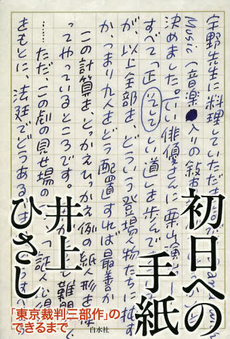 宇野先生に料理していただ
Music（音楽●入りの叙お
決めました。てい俳優さんに乗り演
すべて「正しい道」を歩んで
が、以上全部を、どういう登場人物たちに振
かつまり九人をどう配置すれば最善か
この計算をとっかえひっかえ例の紙人形を
ってやっているところです。
ただ、この劇の見せ場の
をもとに、法廷でどうあるま
初日への
手紙
井上
ひさし
「東京裁判三部作」の
できるまで
白水社